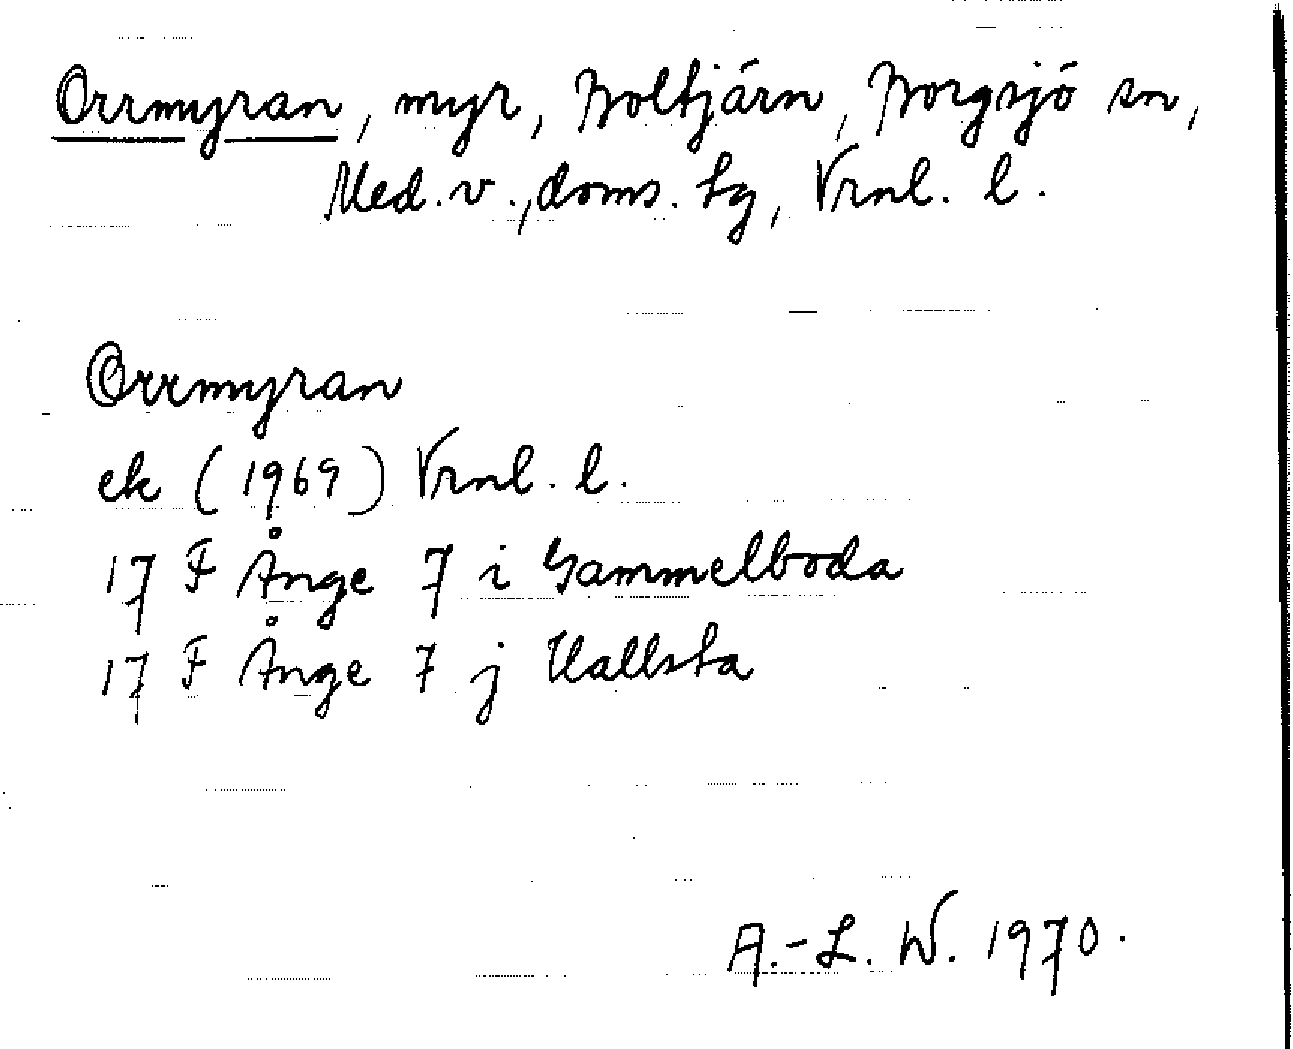 Orrmyran, myr, Boltjärn, Borgsjö sn,
Med. v., doms. tg, Vrnl. l.
Orrmyran
ek (1969) Vrnl. l.
17 F Ånge 7 i Gammelboda
17 F Ånge 7 j Hallsta
A.-L. W. 1970.